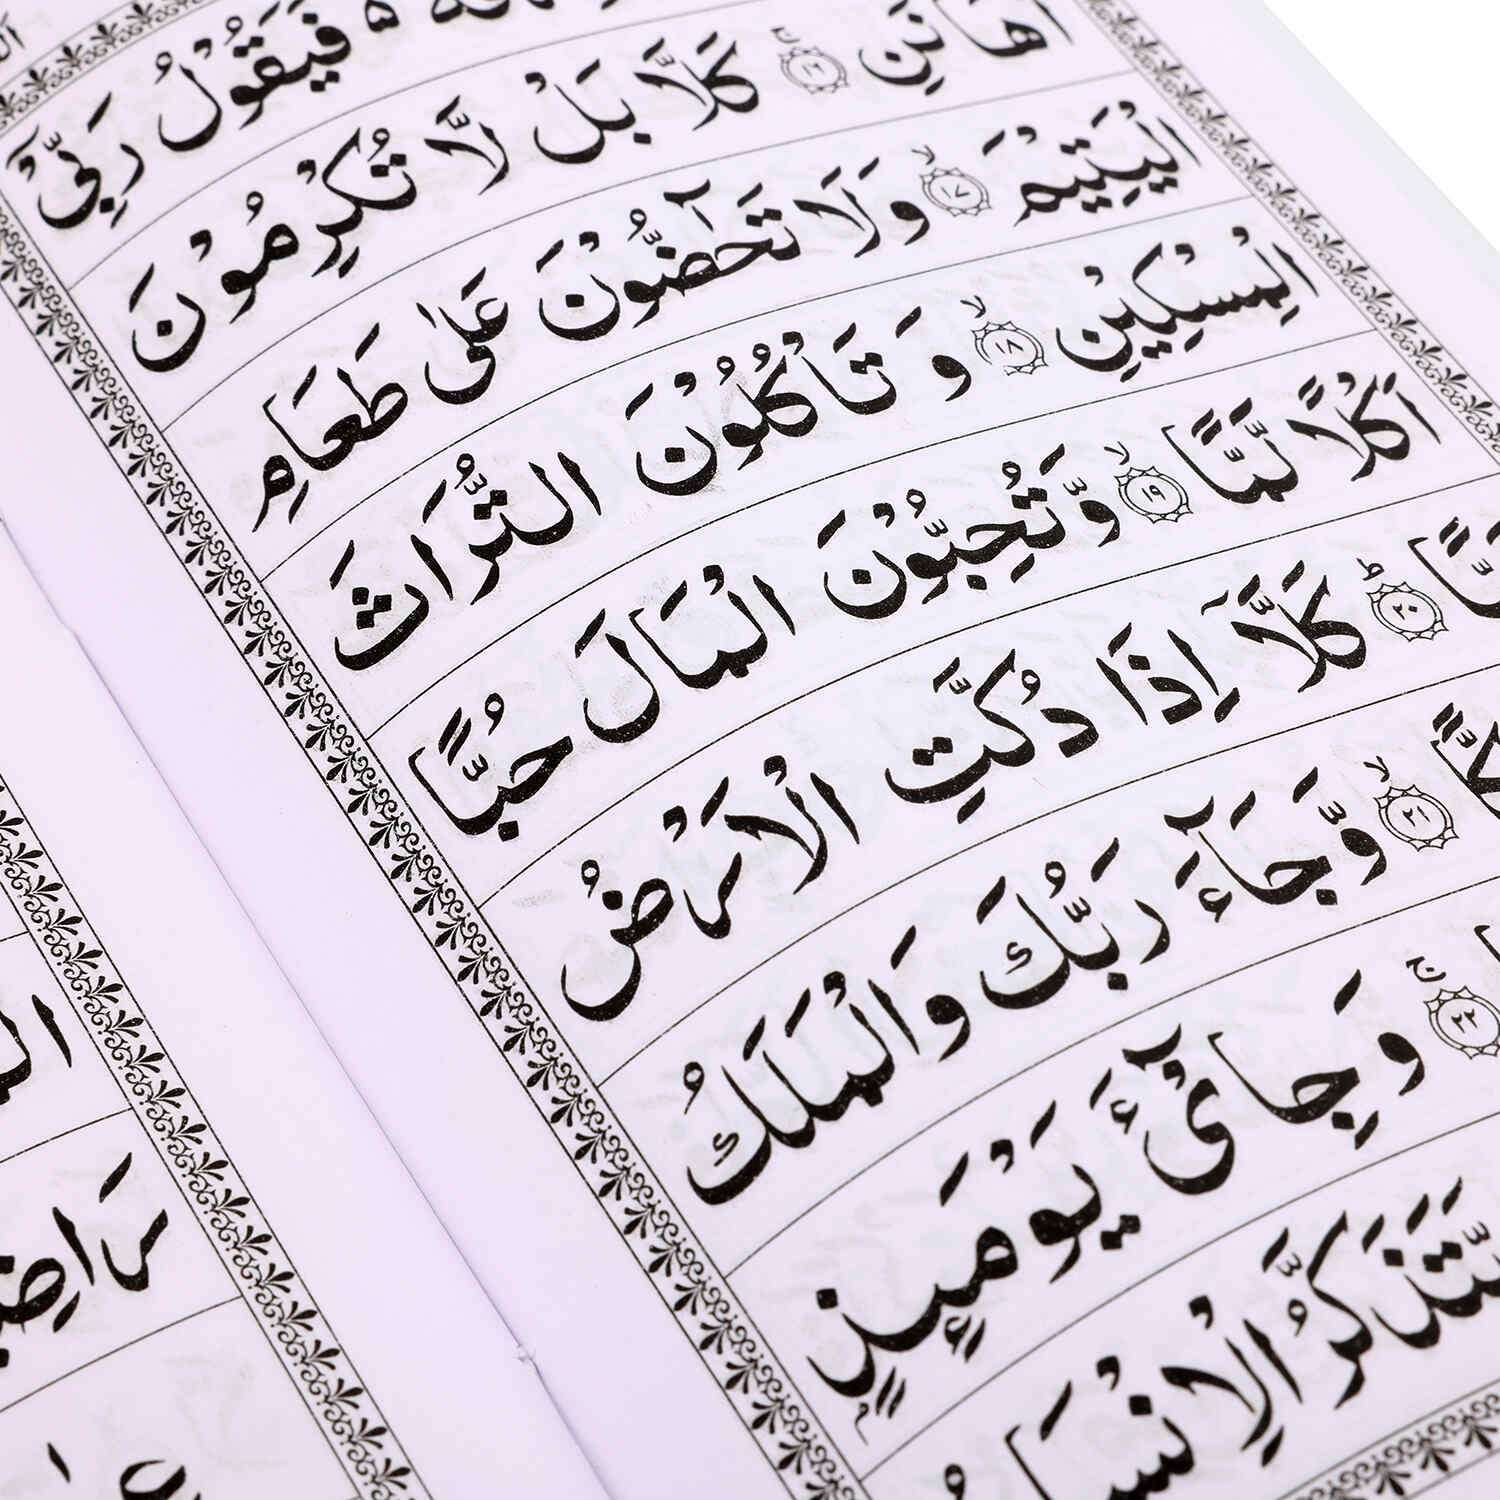 فَيَقُوْلُ رَبِّيْٓ
هَانَنِ ۚ ﴿١٦﴾ كَلَّا بَلْ لَّا تُكْرِمُوْنَ
الْيَتِيْمَ ۙ ﴿١٧﴾ وَلَا تَحٰٓضُّوْنَ عَلٰى طَعَامِ
الْمِسْكِيْنِ ۙ ﴿١٨﴾ وَ تَاْكُلُوْنَ التُّرَاثَ
اَكْلًا لَّمًّا ۙ ﴿١٩﴾ وَّ تُحِبُّوْنَ الْمَالَ حُبًّا
ؕ ﴿٢٠﴾ كَلَّاۤ اِذَا دُكَّتِ الْاَرْضُ
﴿٢١﴾ ۙ وَّ جَآءَ رَبُّكَ وَالْمَلَكُ
ۚ ﴿٢٢﴾ وَ جِايْٓءَ يَوْمَىِٕذٍۭ
يَّتَذَكَّرُ الْاِنْسَا
رَاضِ